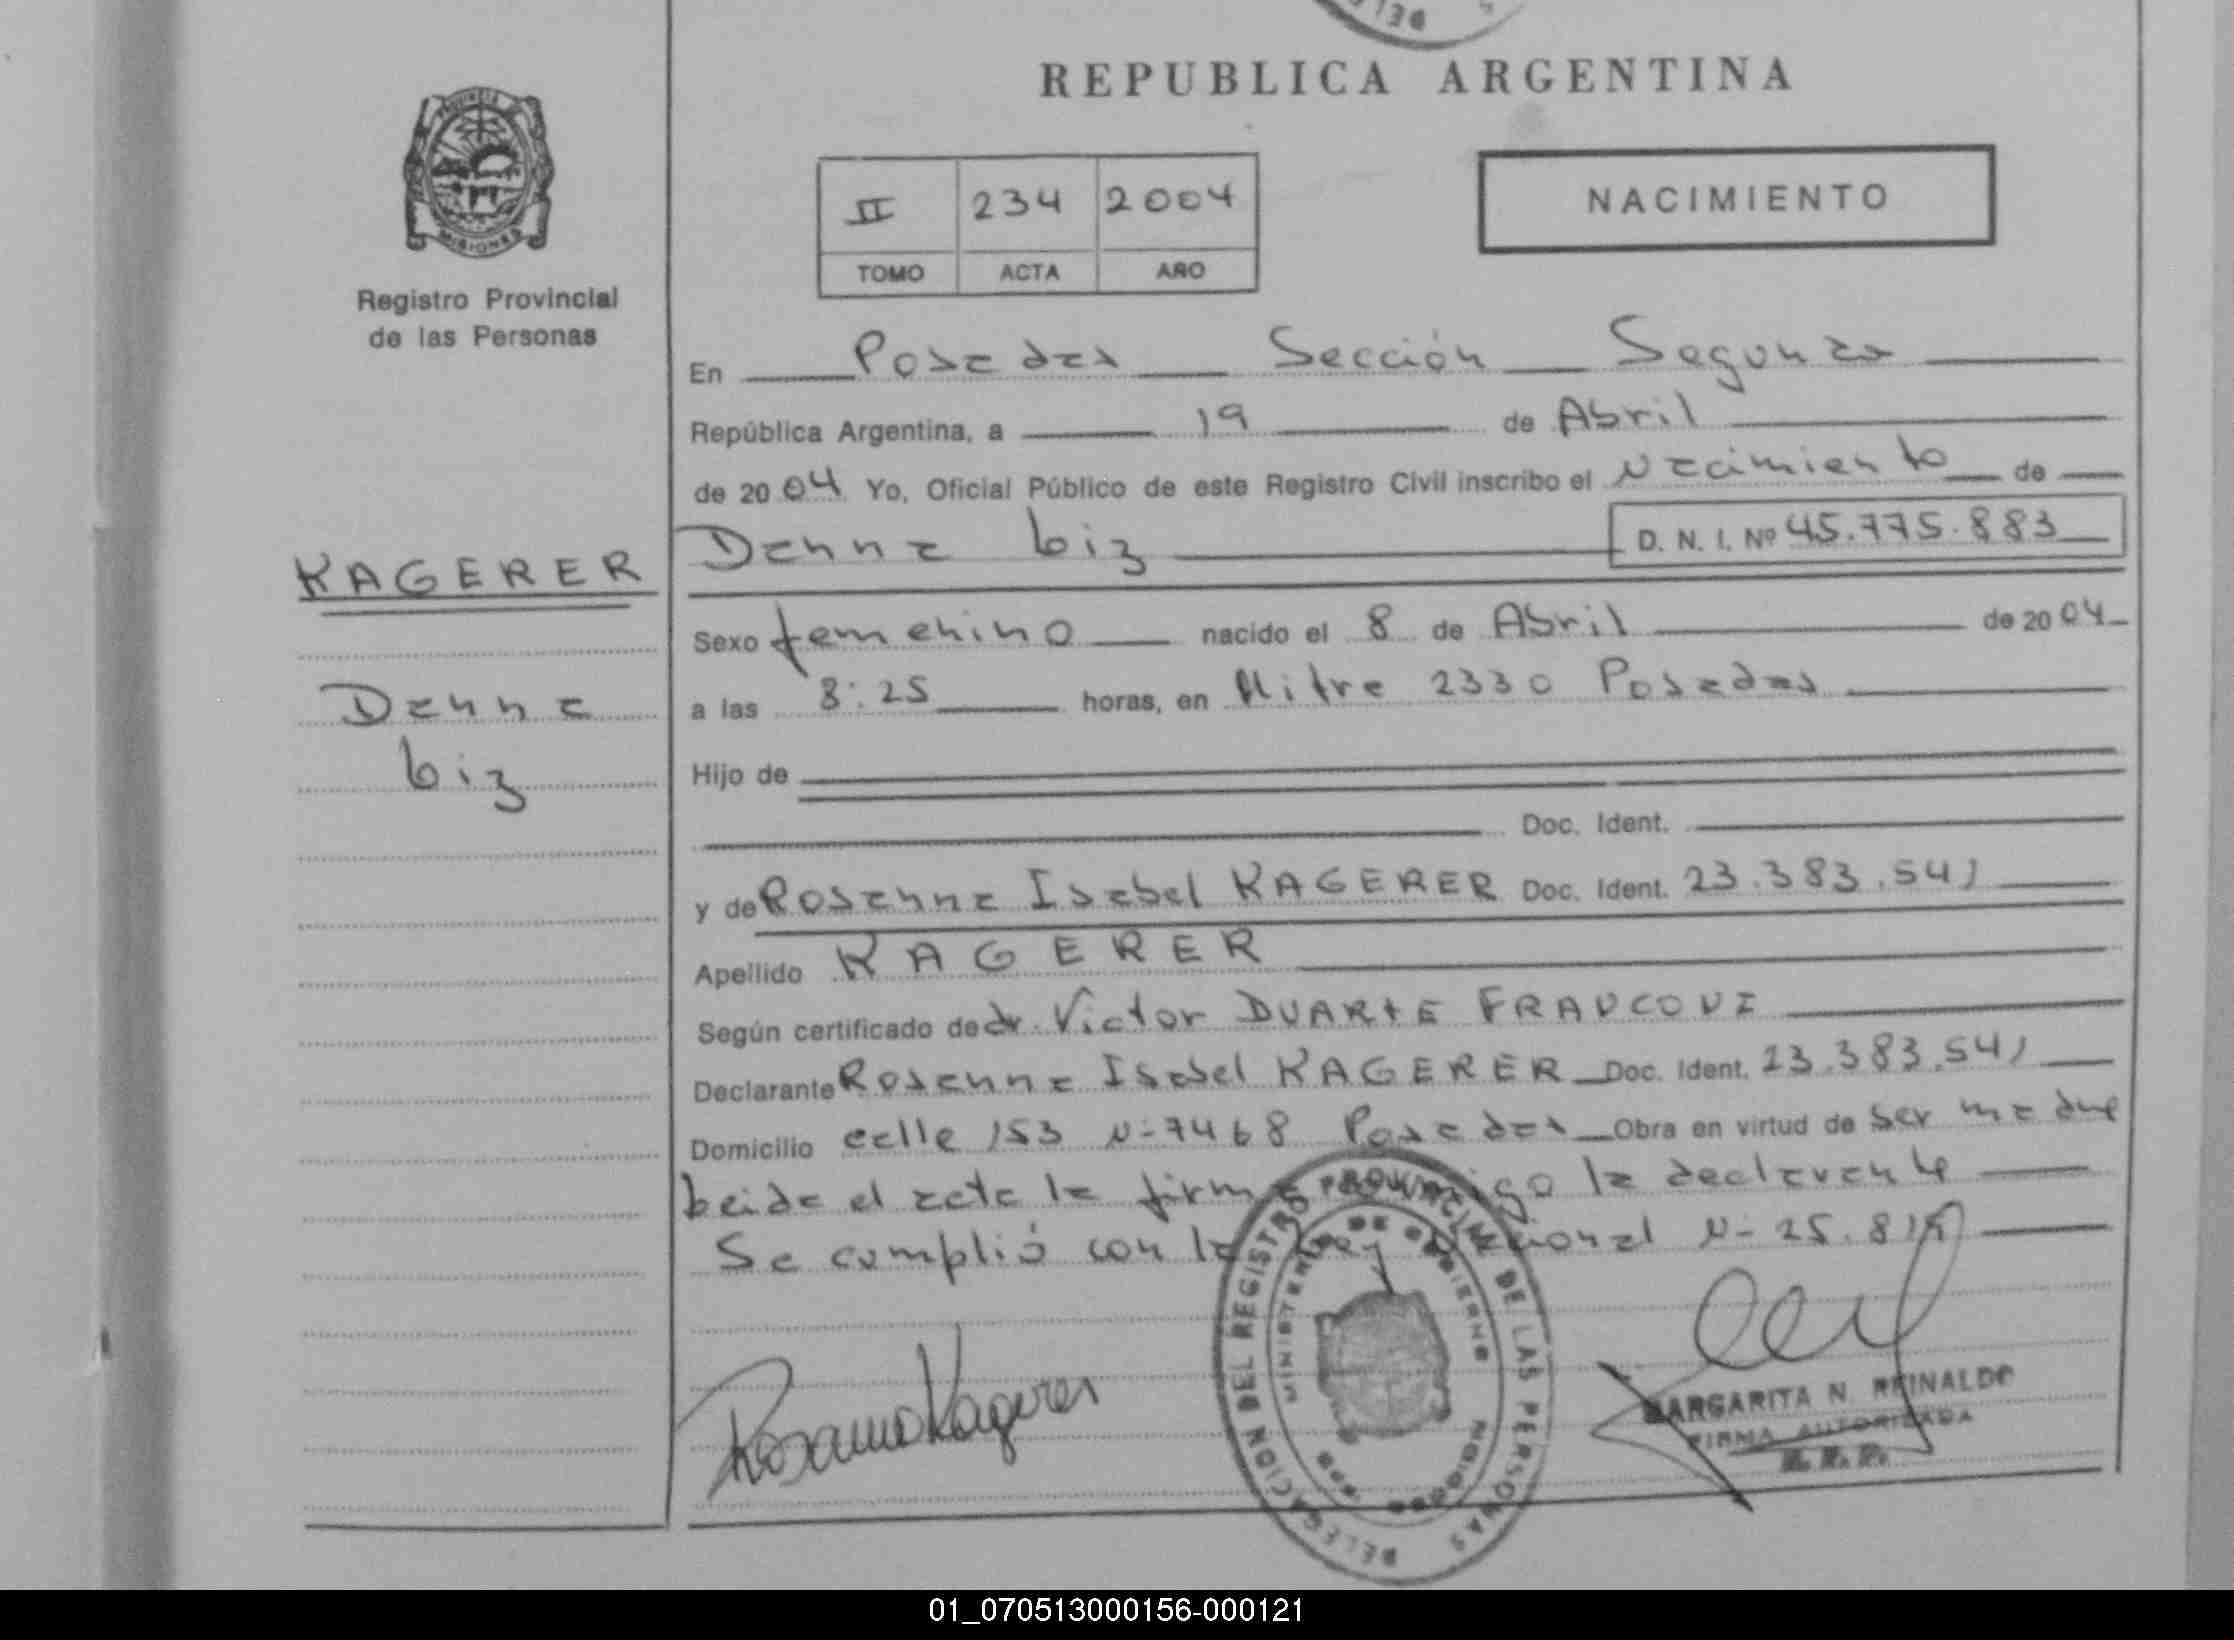 REPUBLICA ARGENTINA
PROVINCIA
MISIONES
Registro Provincial
de las Personas
II 234 2004
TOMO ACTA AÑO
NACIMIENTO
En Posadas Sección Segunda
República Argentina, a 19 de Abril
de 2004 Yo, Oficial Público de este Registro Civil inscribo el Nacimiento de
Danna Liz D. N. I. Nº 45.775.883
KAGERER
Danna
Liz
Sexo femenino nacido el 8 de Abril de 2004
a las 8:25 horas, en Mitre 2330 Posadas
Hijo de
Doc. Ident.
y de Rosanna Isabel KAGERER Doc. Ident. 23.383.541
Apellido KAGERER
Según certificado de dr. Victor DUARTE FRANCONI
Declarante Rosanna Isabel KAGERER Doc. Ident. 23.383.541
Domicilio calle 153 N-7468 Posadas Obra en virtud de ser madre
Leida el acta la firma conmigo la declarante
Se cumplió con la Ley Nacional N- 25.819
Rosanna Kagerer
DELEGACION DEL REGISTRO PROVINCIAL DE LAS PERSONAS
MINISTERIO DE GOBIERNO
MISIONES
MARGARITA N. REINALDO
FIRMA AUTORIZADA
R. P. P.
01_070513000156-000121